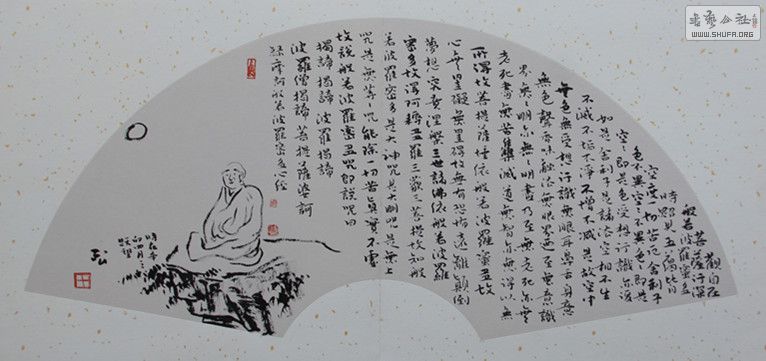 觀自在
菩薩行深
般若波羅蜜多
時照見五蘊皆
空度一切苦厄舍利子
色不異空空不異色色即是
空空即是色受想行識亦復
如是舍利子是諸法空相不生
不滅不垢不淨不增不減是故空中
無色無受想行識無眼耳鼻舌身意
無色聲香味觸法無眼界乃至無意識
界無無明亦無無明盡乃至無老死亦無
老死盡無苦集滅道無智亦無得以無
所得故菩提薩埵依般若波羅蜜多故
心無罣礙無罣礙故無有恐怖遠離顛倒
夢想究竟涅槃三世諸佛依般若波羅
蜜多故得阿耨多羅三藐三菩提故知般
若波羅蜜多是大神咒是大明咒是無上
咒是無等等咒能除一切苦真實不虛
故說般若波羅蜜多咒即說咒曰
揭諦揭諦 波羅揭諦
波羅僧揭諦 菩提薩婆訶
般若波羅蜜多心經
书艺公社
WWW.SHUFA.ORG